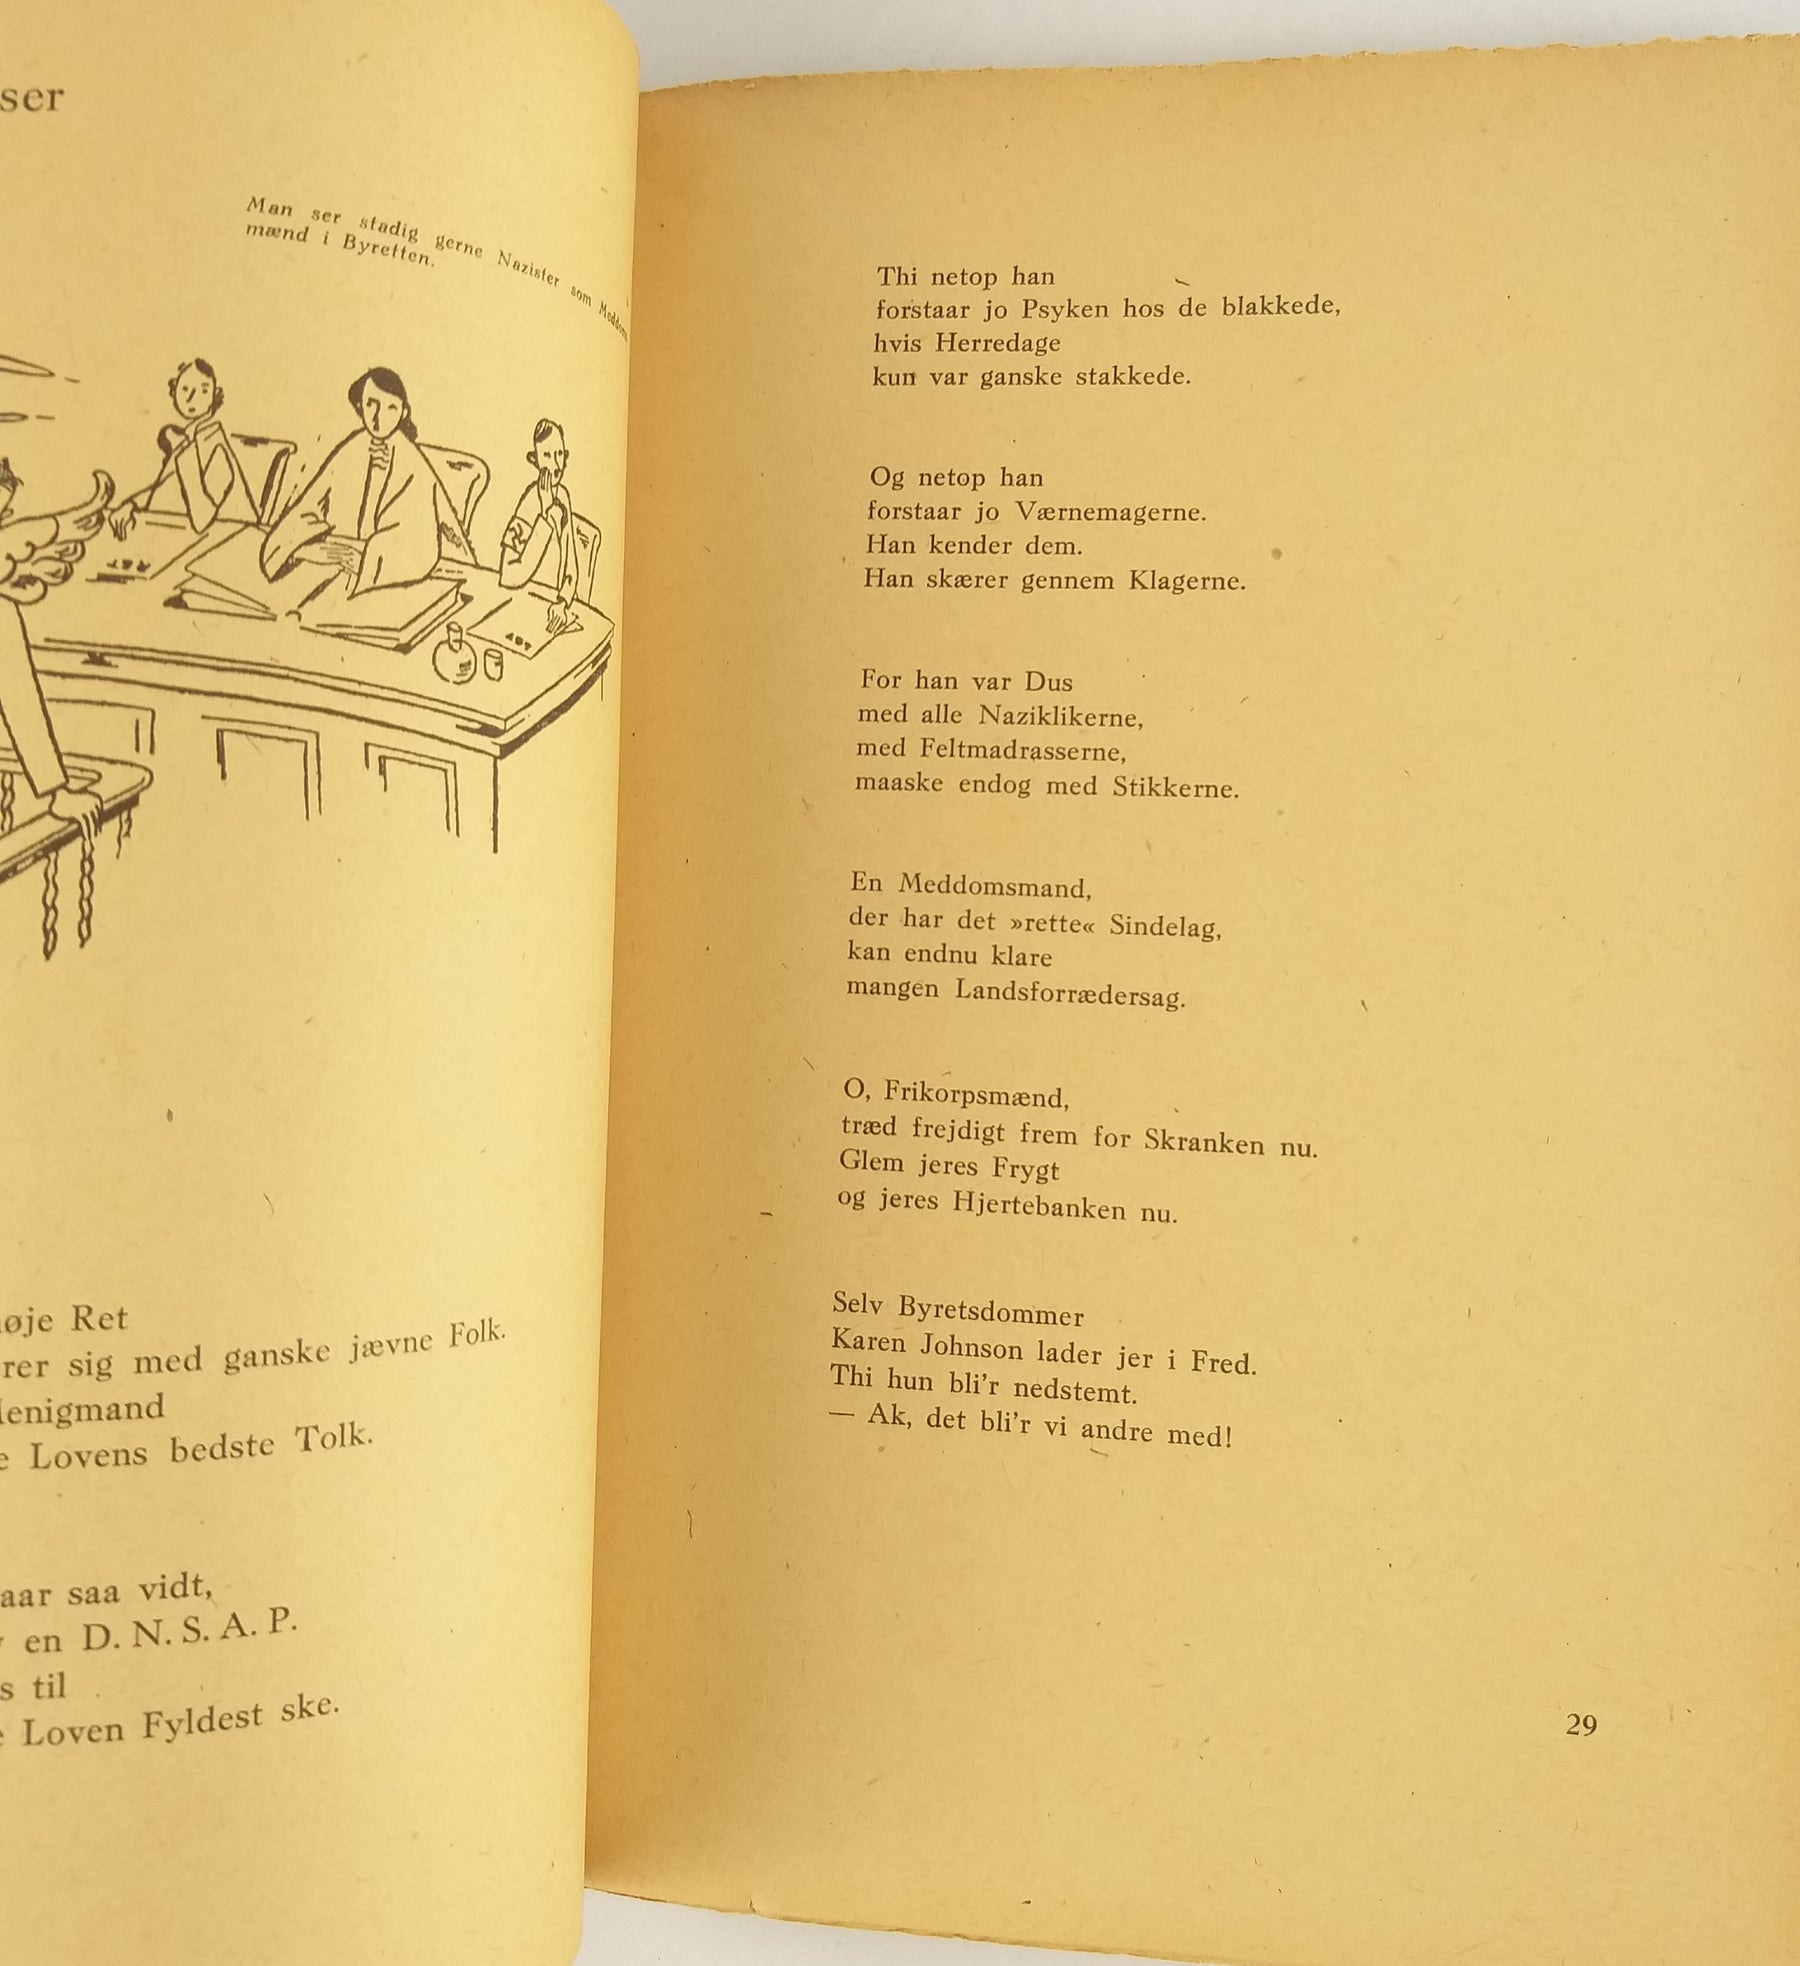 ser
Man ser stadig gerne Nazister som Meddoms-
mænd i Byretten.
øje Ret
rer sig med ganske jævne Folk.
enigmand
e Lovens bedste Tolk.
aar saa vidt,
en D. N. S. A. P.
s til
e Loven Fyldest ske.
Thi netop han
forstaar jo Psyken hos de blakkede,
hvis Herredage
kun var ganske stakkede.
Og netop han
forstaar jo Værnemagerne.
Han kender dem.
Han skærer gennem Klagerne.
For han var Dus
med alle Naziklikerne,
med Feltmadrasserne,
maaske endog med Stikkerne.
En Meddomsmand,
der har det »rette« Sindelag,
kan endnu klare
mangen Landsforrædersag.
O, Frikorpsmænd,
træd frejdigt frem for Skranken nu.
Glem jeres Frygt
og jeres Hjertebanken nu.
Selv Byretsdommer
Karen Johnson lader jer i Fred.
Thi hun bli'r nedstemt.
— Ak, det bli'r vi andre med!
29